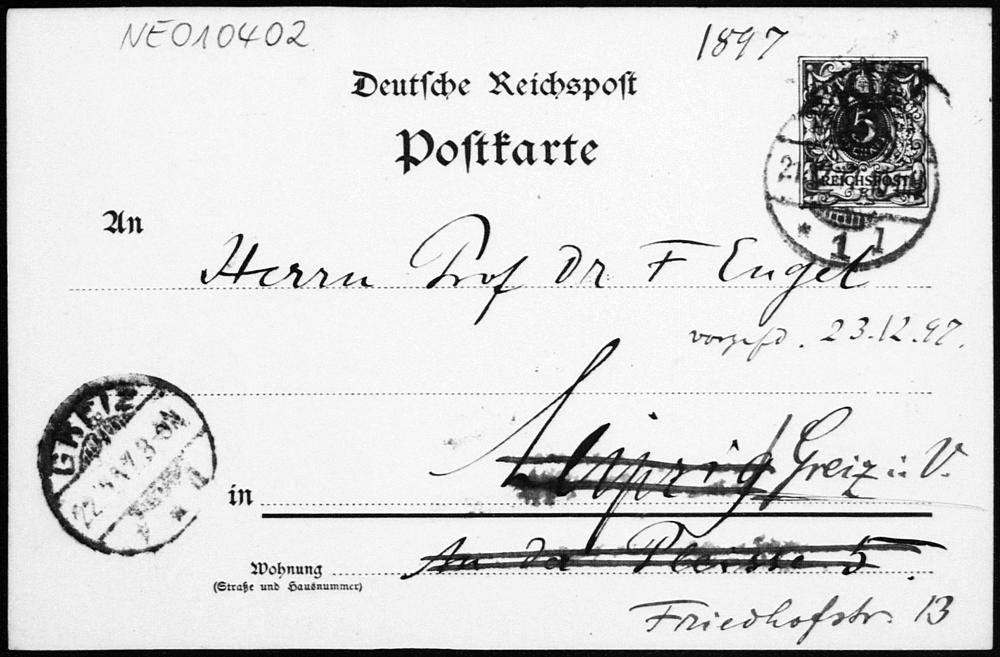 NEO10402
1897
Deutsche Reichspost
Postkarte
5
REICHSPOST
21
* 1 1
An
Herrn Prof Dr F Engel
23.12.97.
GREIZ
22 97 8-9N
in Leipzig Greiz i. V.
Wohnung An der Pleisse 5.
(Straße und Hausnummer)
Friedhofstr. 13